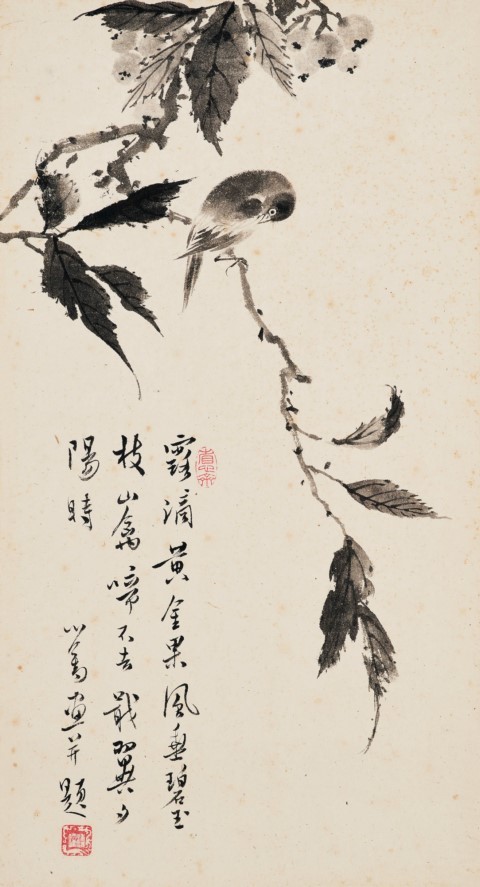 露滴黃金果風垂碧玉
枝山禽啼不去戢翼夕
陽時
心畬畫并題